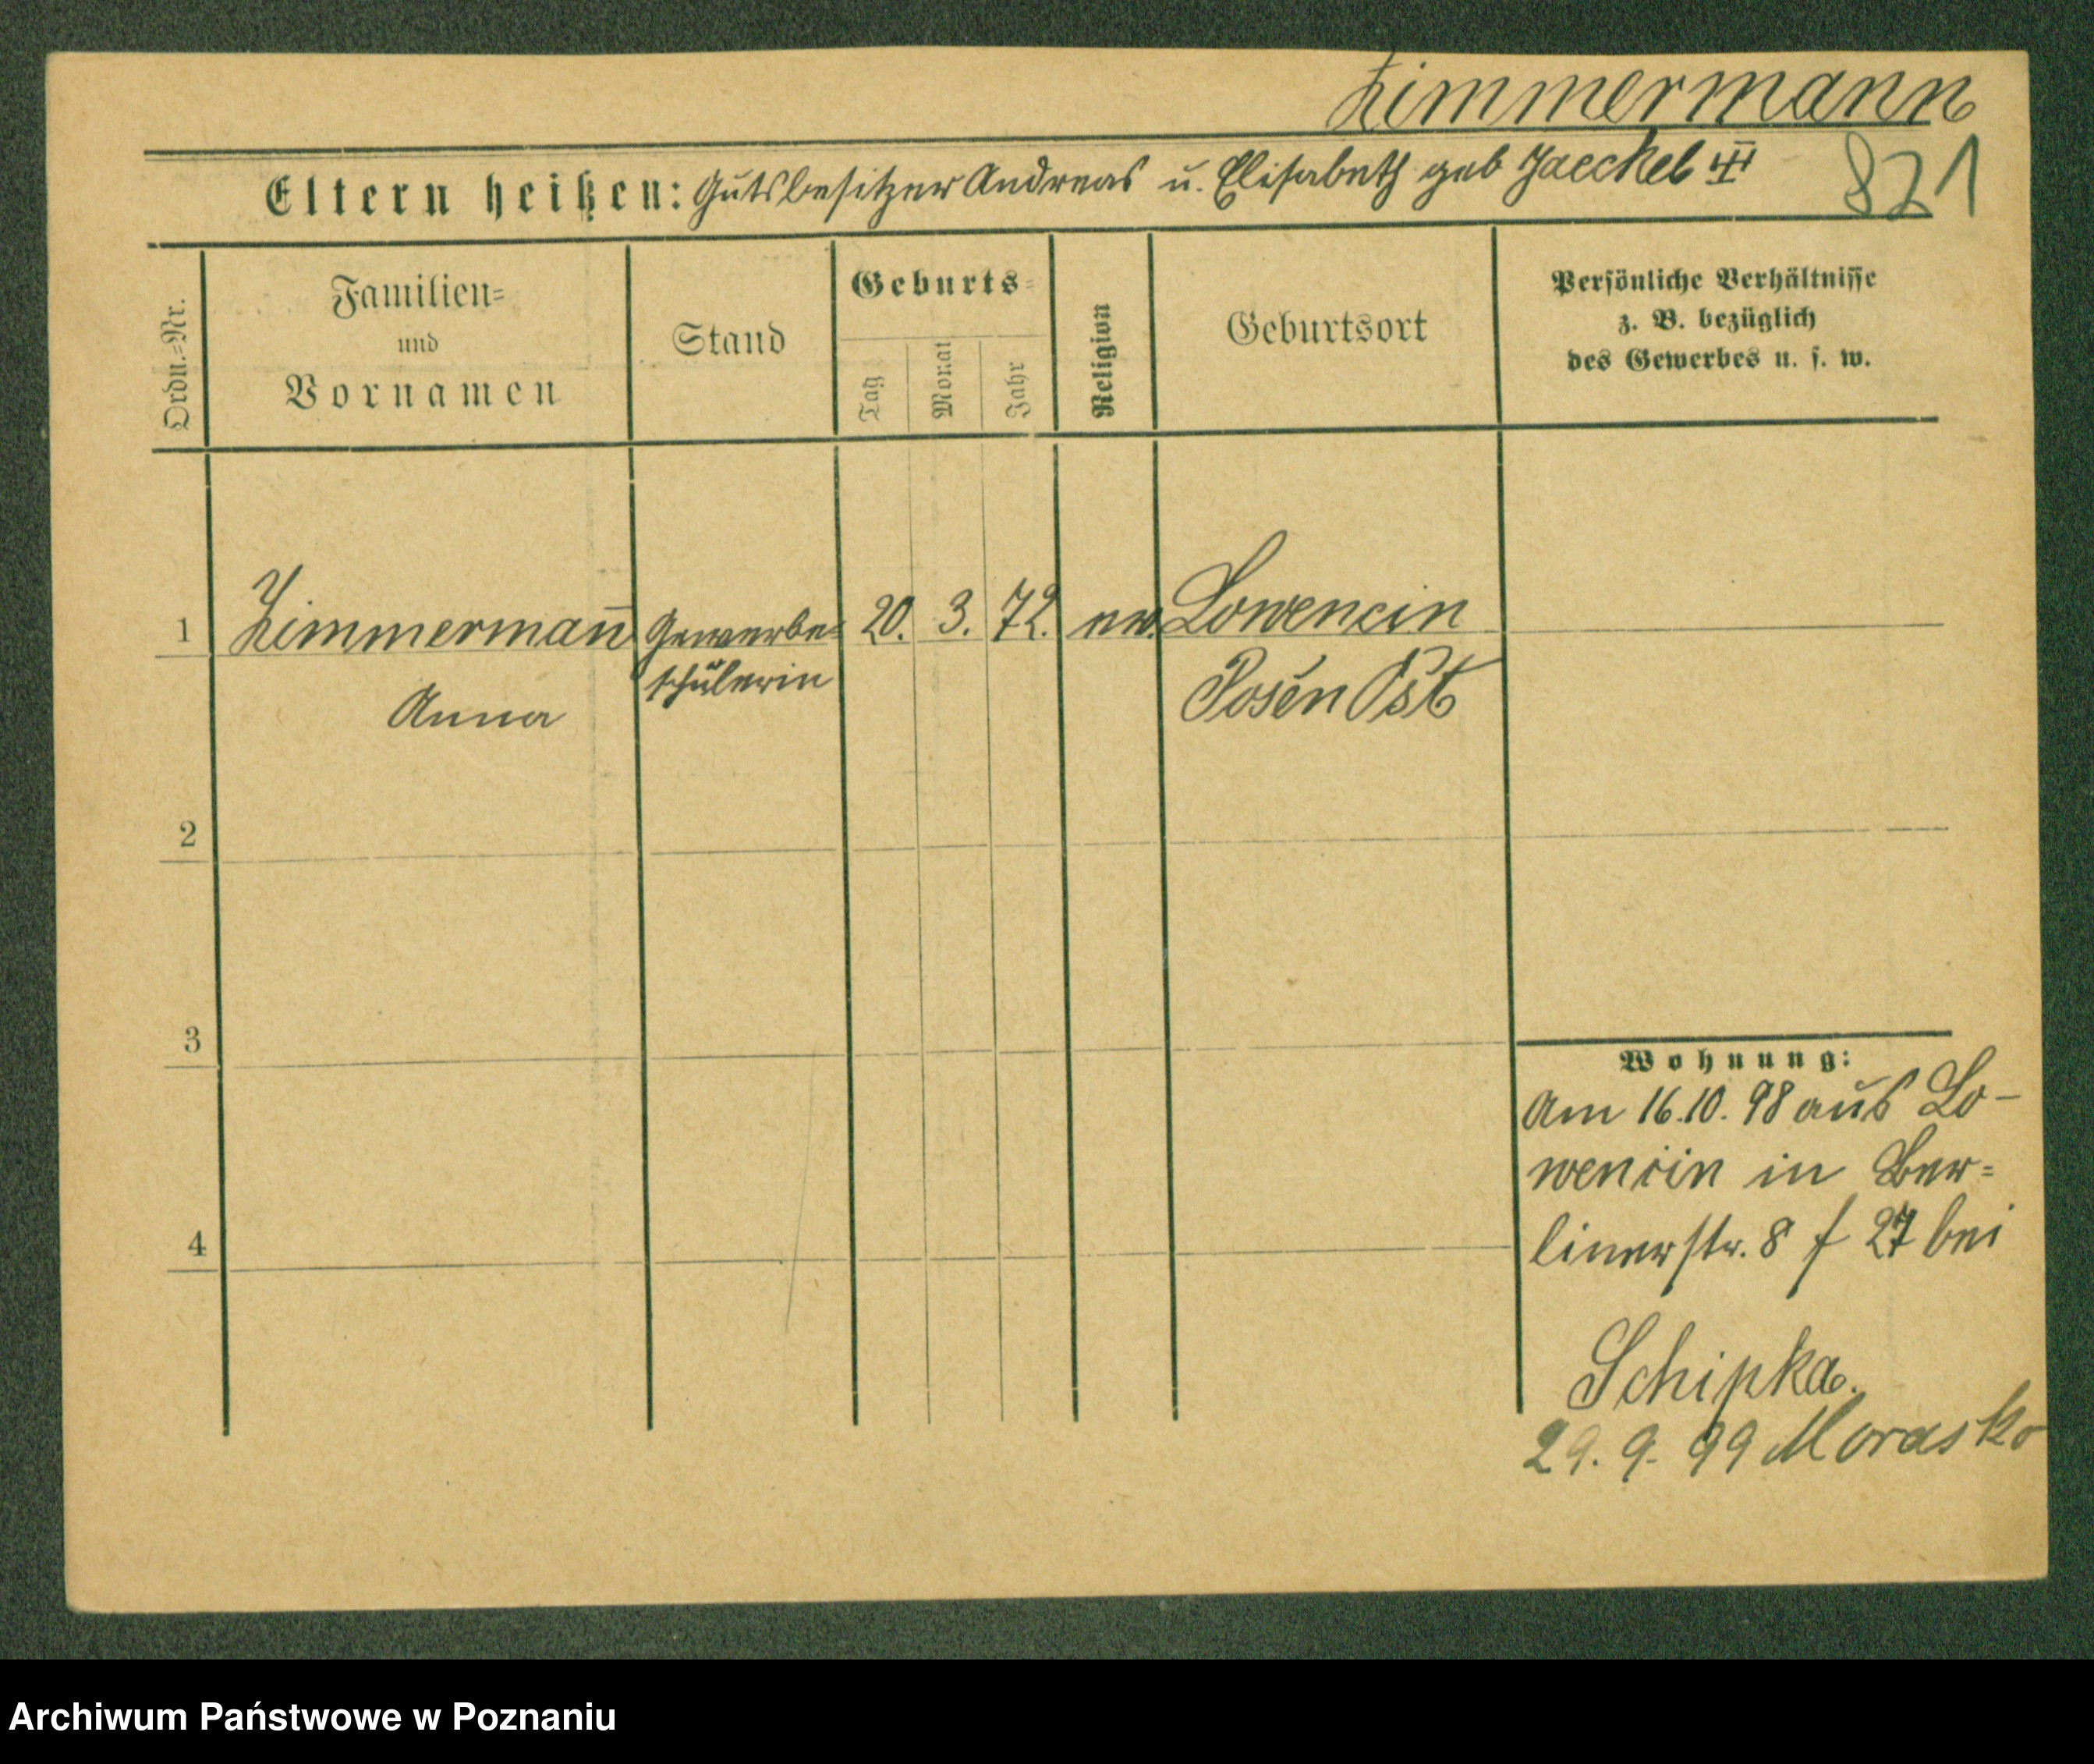 Zimmermann
Eltern heißen: Gutsbesitzer Andreas u. Elisabeth geb Jaeckel III
821
Ordn.-Nr.
Familien-
und
Vornamen
Stand
Geburts-
Tag
Monat
Jahr
Religion
Geburtsort
Persönliche Verhältnisse
z. B. bezüglich
des Gewerbes u. s. w.
1 Zimmermann̅ Gewerbe= 20. 3. 72. ev. Lowencin
schülerin
Anna
Posen Ost
2
3
4
Wohnung:
Am 16.10.98 aus Lo-
wencin in Ber=
linerstr. 8 f 27 bei
Schipka.
29. 9. 99 Morasko
Archiwum Państwowe w Poznaniu